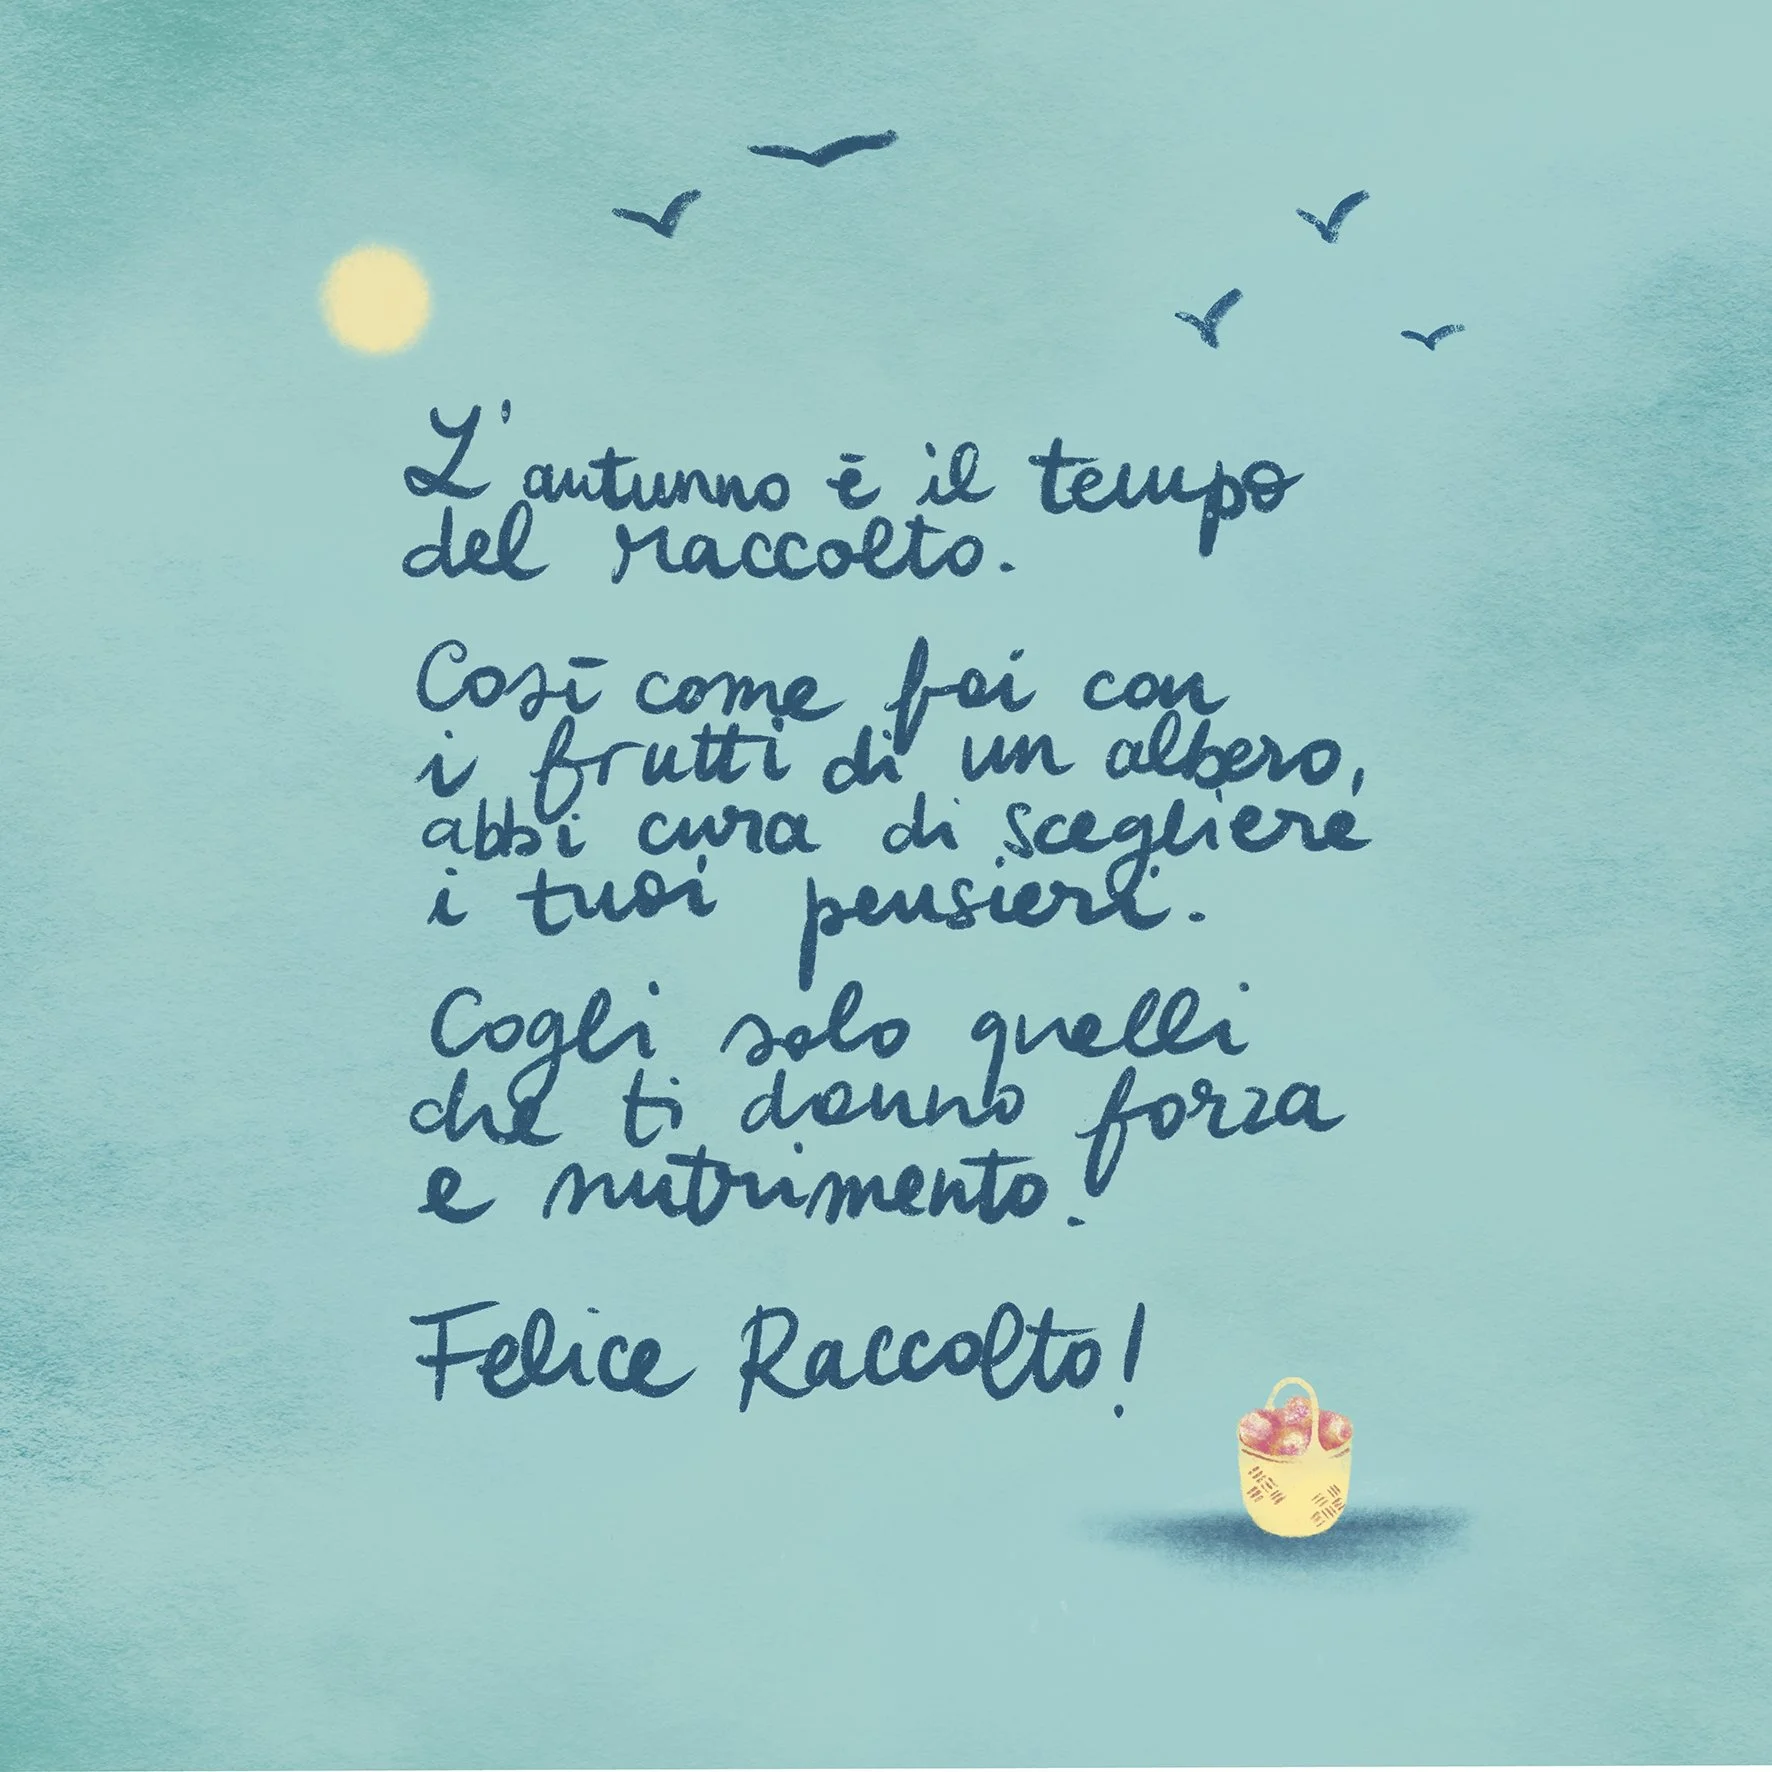 L'autunno è il tempo
del raccolto.
Così come fai con
i frutti di un albero,
abbi cura di scegliere
i tuoi pensieri.
Cogli solo quelli
che ti danno forza
e nutrimento.
Felice Raccolto!